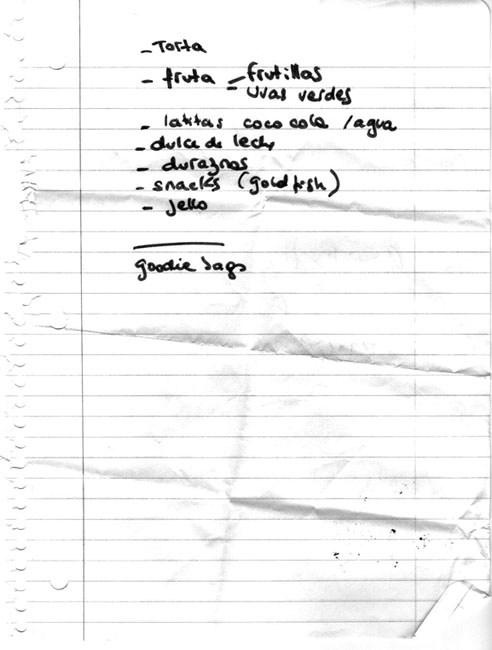 - Torta
- fruta - frutillas
- uvas verdes
- latitas coco cola / agua
- dulce de leche
- duraznos
- snacks (goldfish)
- jello
goodie bags